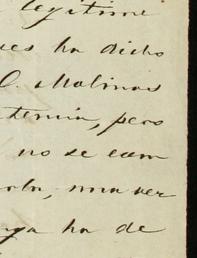 legitime
ues ha dicho
O. Molinas
tenia, pero
no se cam
una vez
ya ha de